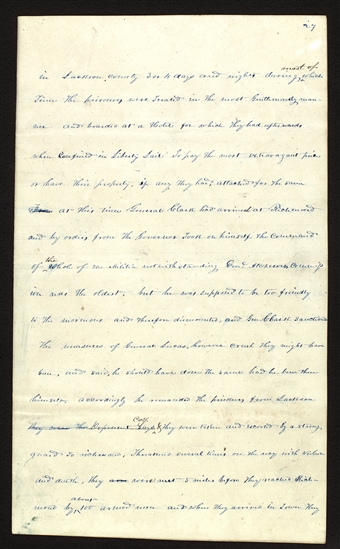 27
most of
in Jackson county 3 or 4 days and nights during which
Time the prisoners were treated in the most Gentlemanly man-
ner and boarded at a Hotel for which They had afterwards
when Confined in Liberty Jail To pay the most extravagant price
or have their property, if any they had, attached for the same
at this time General Clark had arrived at Richmond
and by orders from the Governor Took on himself the Command
the
of whole of the militia notwithstanding Genl Atkisons Commis
ion was the oldest, but he was supposed to be too friendly
to the mormons and therefore dismounted, and Gen Clark sanctioned
the measures of General Lucas, however cruel they might have
been, and said, he should have done the same had he been there
himself, accordingly he remanded the prisoners from Jackson
Coy
They were the Deponent Says & they were taken and escorted by a strong
guard To richmond, Threatened several times on the way with violence
and death, they were met 5 miles before they reached Rich-
about
mond by 100 armed men and when they arrived in Town they